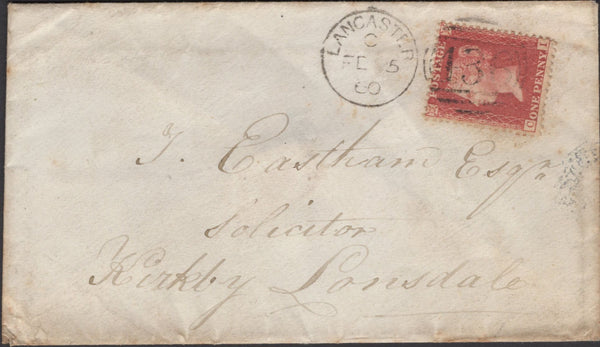 LANCASTER
C
FE 5
60
POSTAGE
ONE PENNY
T. Eastham Esqr.
Solicitor
Kirkby Lonsdale